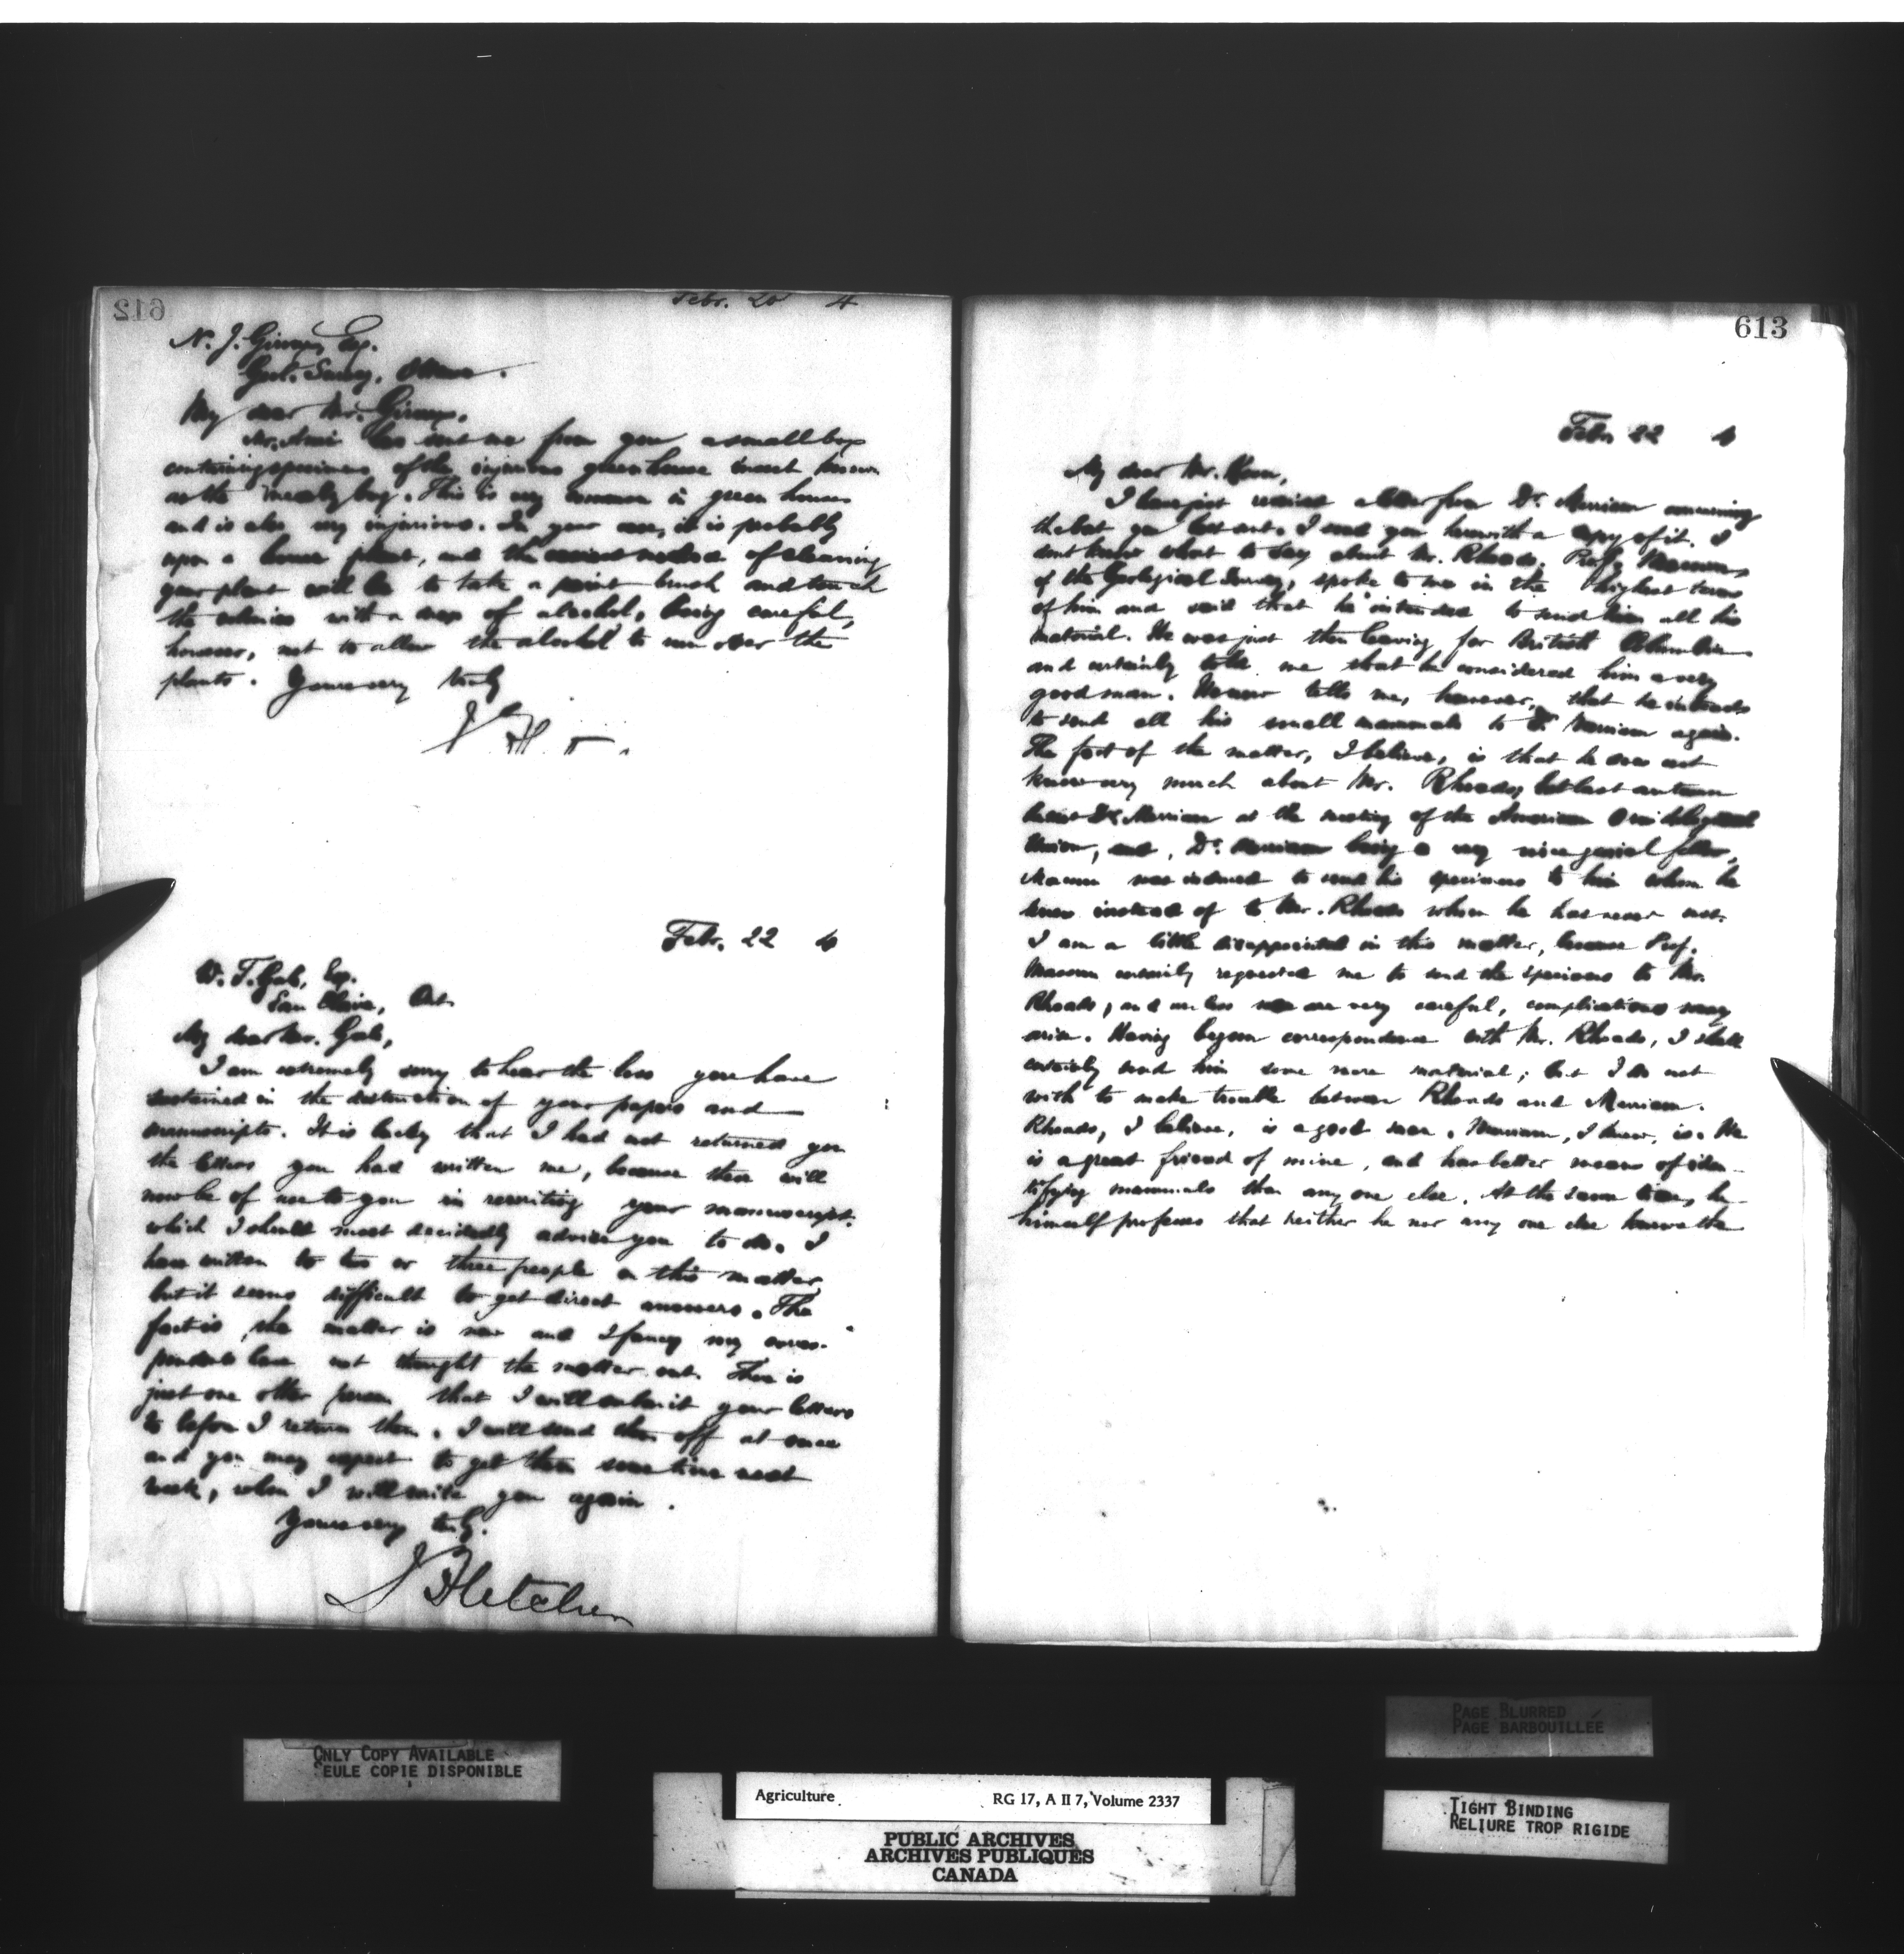 612
Febr. 20 4
N. J. Giroux, Esq.
Geol. Survey, Ottawa.
My dear Mr. Giroux,
Mr. Ami has sent me from you a small box
containing specimens of the injurious greenhouse insect known
as the mealy bug. This is very common in green houses
and is also very injurious. In your case, it is probably
upon a house plant, and the easiest method of cleaning
your plant will be to take a paint brush and touch
the colonies with a drop of alcohol, being careful,
however, not to allow the alcohol to run over the
plants. Yours very truly
J. F.
Febr. 22 4
W. T. Esq.
Ont.
My dear Mr.
I am extremely sorry to hear the loss you have
sustained in the destruction of your papers and
manuscripts. It is lucky that I had not returned you
the letters you had written me, because these will
now be of use to you in rewriting your manuscript.
which I should most decidedly advise you to do. I
have written to two or three people on this matter
but it seems difficult to get direct answers. The
fact is, the matter is new and I fancy my corres-
pondents have not thought the matter out. There is
just one other person that I will submit your letters
to before I return them. I will send them off at once
and you may expect to get them some time next
week, when I will write you again.
Yours very truly.
J Fletcher
613
Febr. 22 4
My dear Mr.
I have just received a letter from Dr. Merriam concerning
the bat you sent. I send you herewith a copy of it. I
dont know what to say about Mr. Rhoads. Prof. Macoun,
of the Geological Survey, spoke to me in the highest terms
of him and said that he intended to send him all his
material. He was just then leaving for British Columbia
and certainly told me that he considered him a very
good man. He now tells me, however, that he intends
to send all his small mammals to Dr. Merriam again.
The fact of the matter, I believe, is that he does not
know very much about Mr. Rhoads, but last autumn
he met Dr. Merriam at the meeting of the American Ornithological
Union, and, Dr. Merriam being a very nice genial fellow,
Macoun was induced to send his specimens to him whom he
knew instead of to Mr. Rhoads whom he has never met.
I am a little disappointed in this matter, because Prof.
Macoun certainly requested me to send the specimens to Mr.
Rhoads, and unless we are very careful, complications may
arise. Having begun correspondence with Mr. Rhoads, I shall
certainly send him some more material; but I do not
wish to make trouble between Rhoads and Merriam.
Rhoads, I believe, is a good man. Merriam, I know, is. He
is a great friend of mine, and has better means of iden-
tifying mammals than any one else. At the same time, he
himself professes that neither he nor any one else knows the
ONLY COPY AVAILABLE
SEULE COPIE DISPONIBLE
PAGE BLURRED
PAGE BARBOUILLEE
Agriculture RG 17, A II 7, Volume 2337
TIGHT BINDING
RELIURE TROP RIGIDE
PUBLIC ARCHIVES
ARCHIVES PUBLIQUES
CANADA